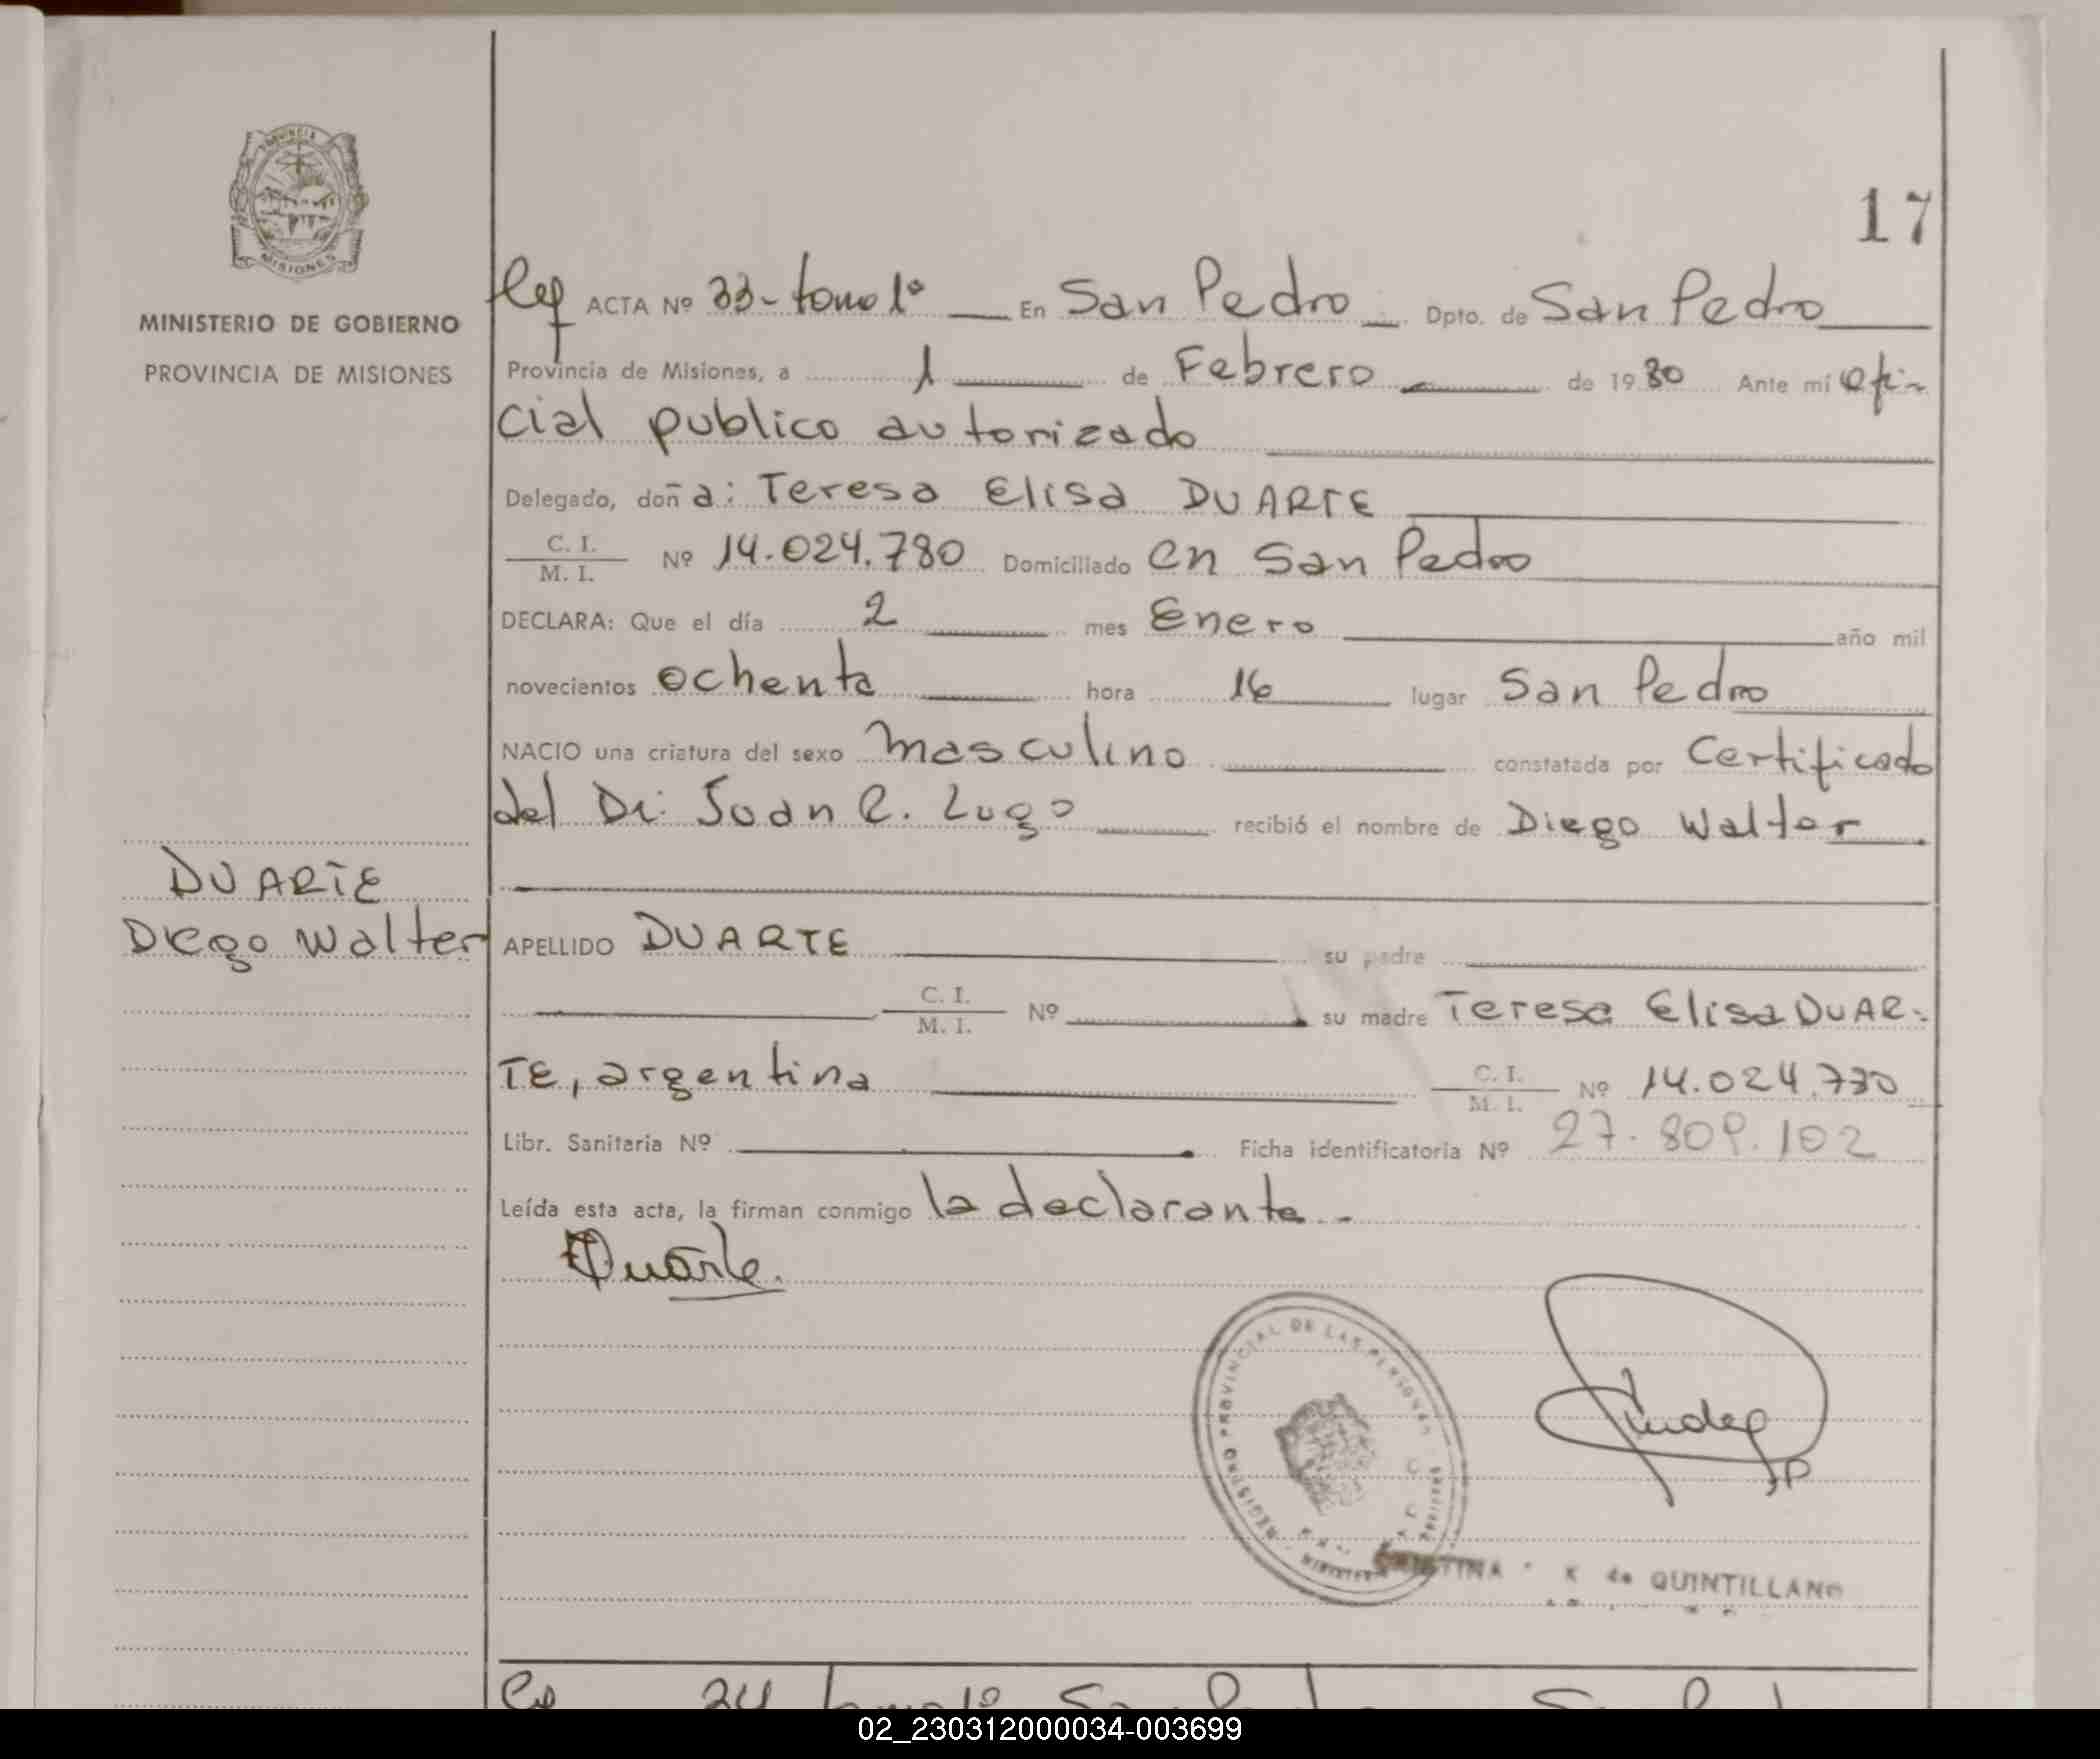 PROVINCIA
MISIONES
MINISTERIO DE GOBIERNO
PROVINCIA DE MISIONES
17
ACTA Nº 33- tomo 1º En San Pedro Dpto. de San Pedro
Provincia de Misiones, a 1 de Febrero de 1980 Ante mí Ofi-
cial publico autorizado
Delegado, doña: Teresa Elisa DUARTE
C. I.
M. I. Nº 14.024.780 Domiciliado en San Pedro
DECLARA: Que el día 2 mes Enero año mil
novecientos ochenta hora 16 lugar San Pedro
NACIO una criatura del sexo masculino constatada por Certificado
del Dr: Juan C. Lugo recibió el nombre de Diego Walter
DUARTE
Diego Walter
APELLIDO DUARTE su padre
C. I.
M. I. Nº su madre Teresa Elisa DUAR-
TE, argentina C. I.
M. I. Nº 14.024.780
Libr. Sanitaria Nº Ficha identificatoria Nº 27.809.102
Leída esta acta, la firman conmigo la declarante.-
Duarte.
REGISTRO PROVINCIAL DE LAS PERSONAS
K de QUINTILLAN
02_230312000034-003699